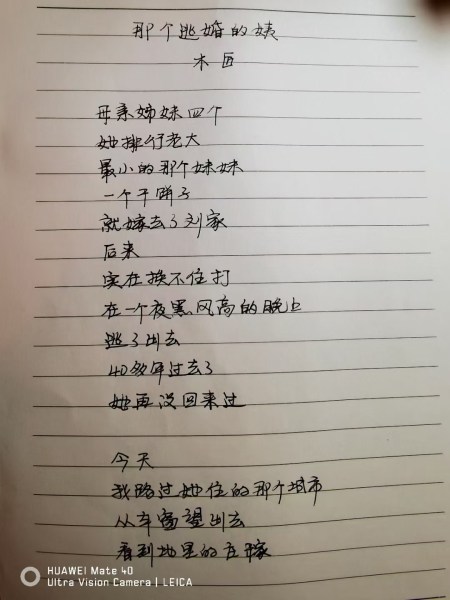 那个逃婚的姨
木匠
母亲姊妹四个
她排行老大
最小的那个妹妹
一个干饼子
就嫁去了刘家
后来
实在挨不住打
在一个夜黑风高的晚上
逃了出去
40多年过去了
她再没回来过
今天
我路过她住的那个城市
从车窗望出去
看到地里的庄稼
HUAWEI Mate 40
Ultra Vision Camera | LEICA